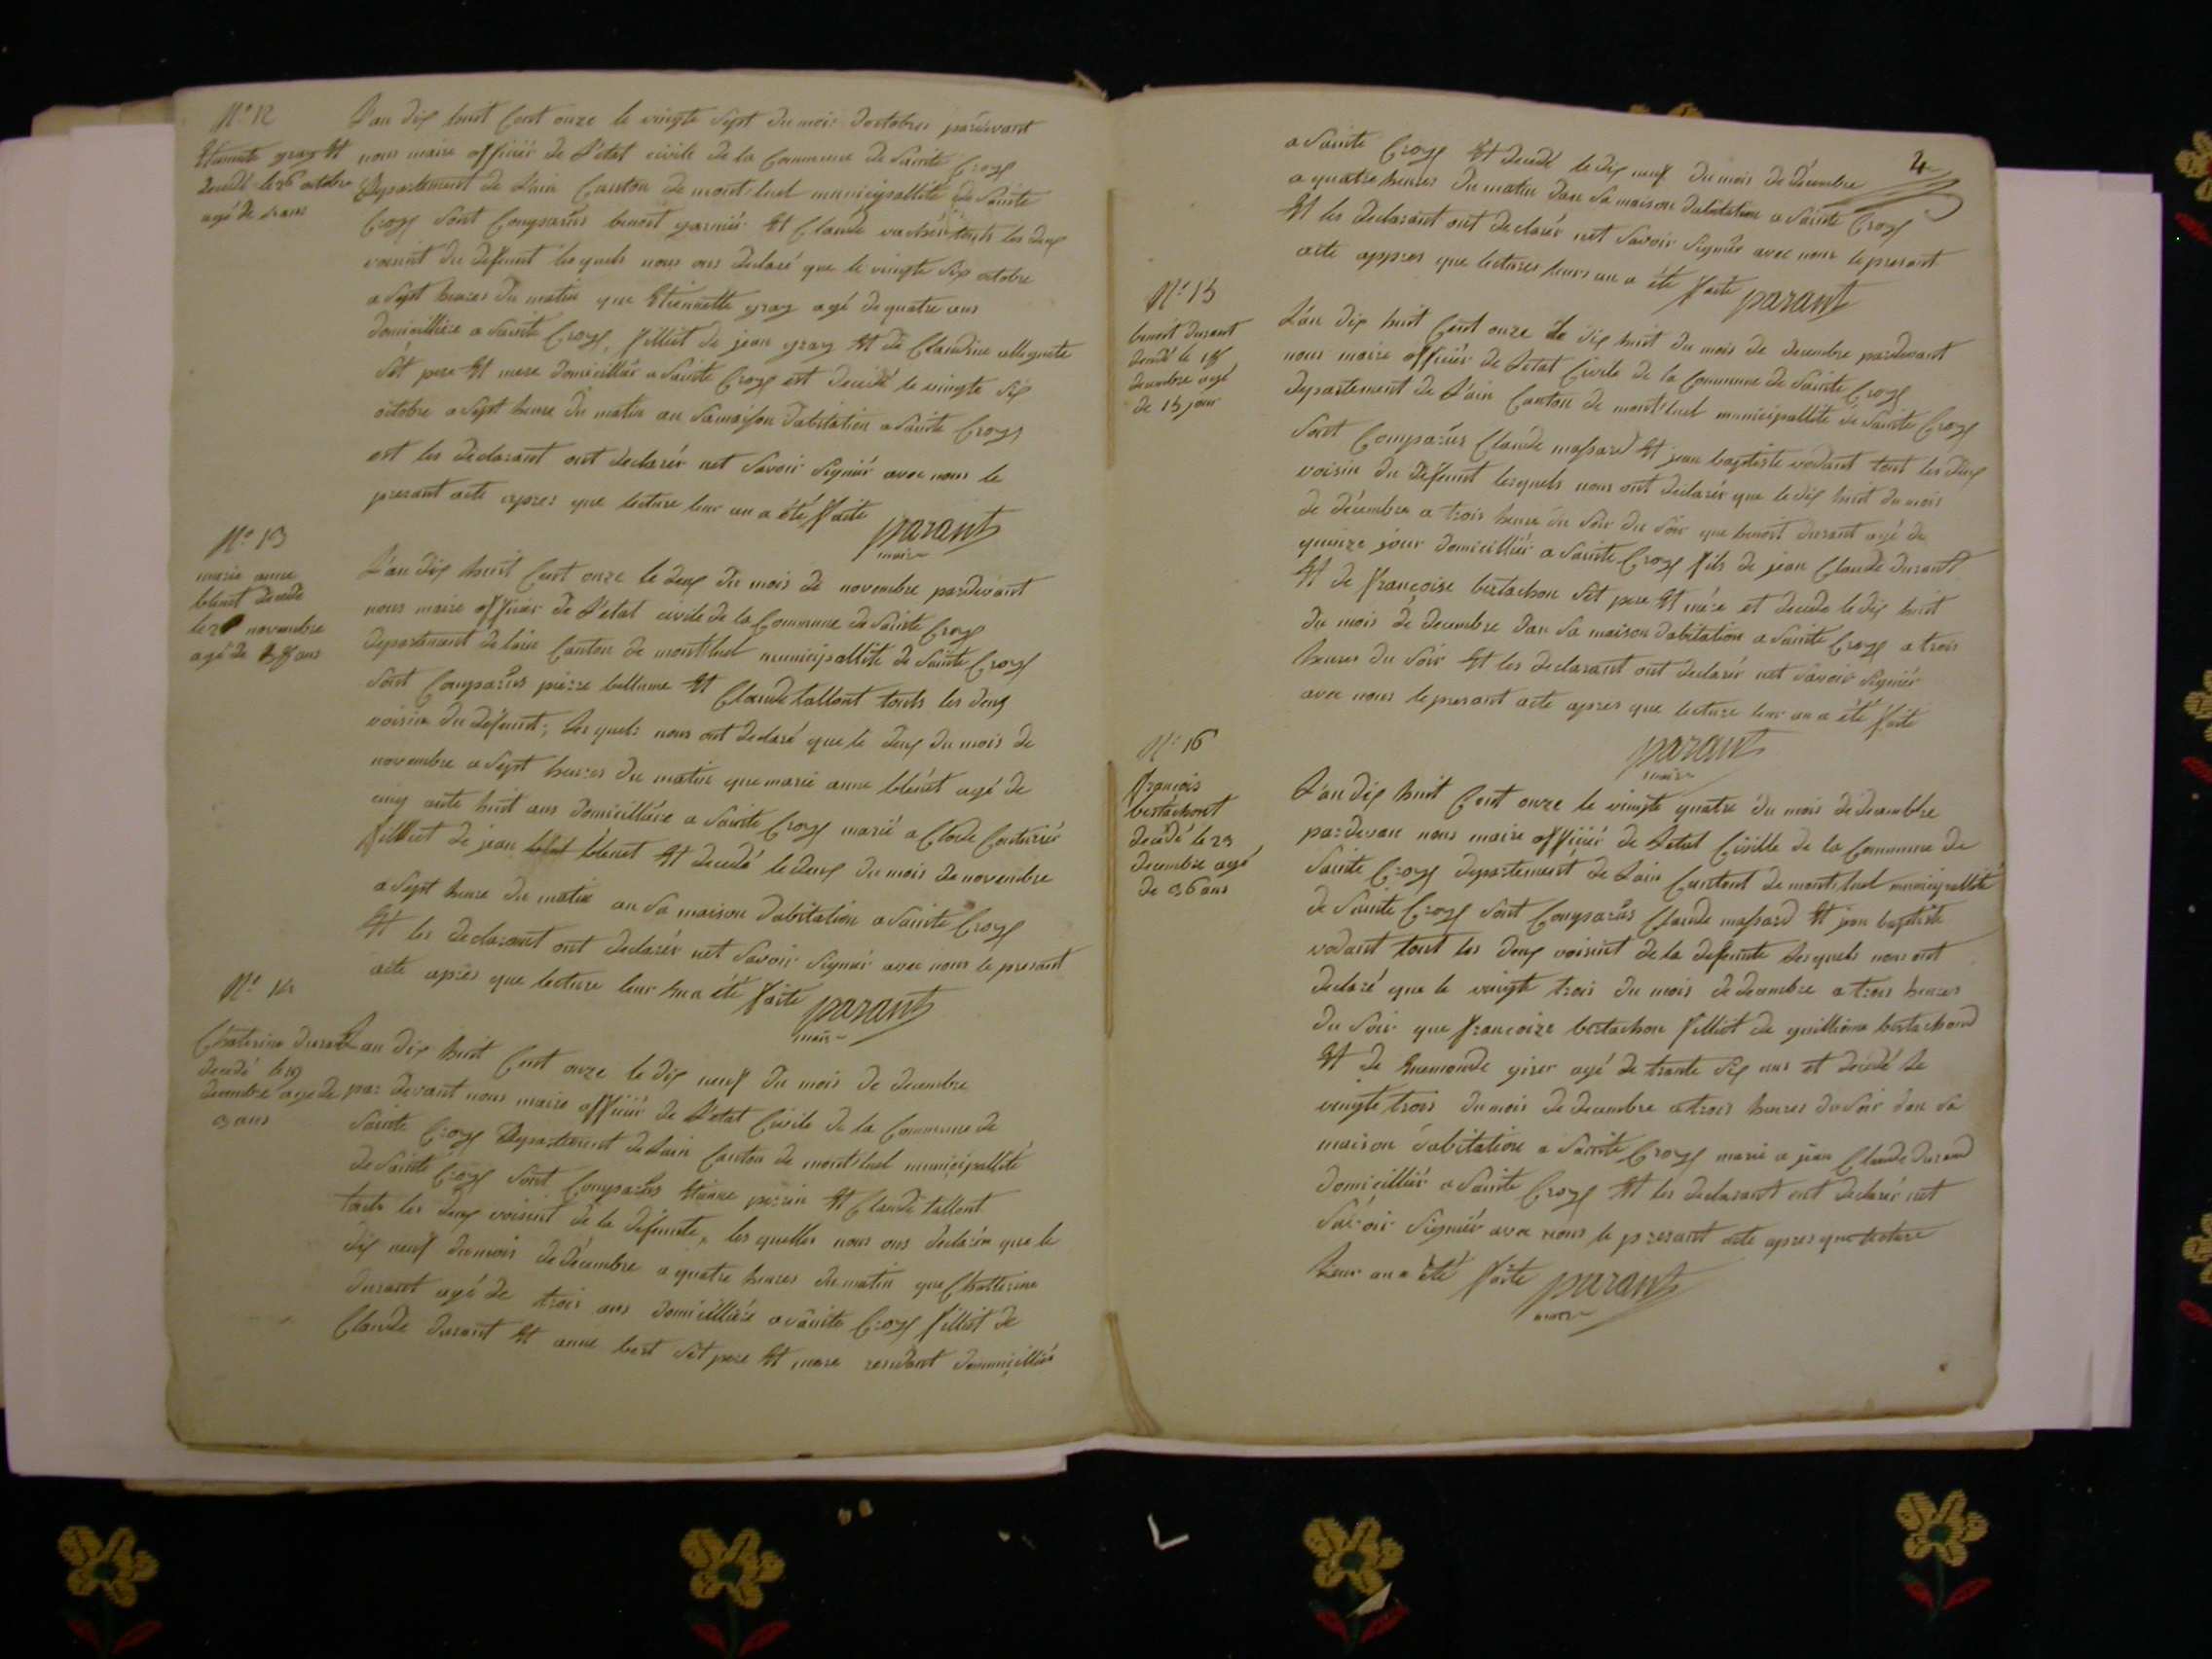 N° 12
Etiennette gray Et
decedé le 26 octobre
agé de 4 ans
L'an dix huit Cent onze le vingte sept du mois doctobres pardevant
nous maire officiér de L'état civile de la Commune de Sainte Croyx
Departement de L'ain Canton de mont-luel municipallité de Sainte
Croyx Sont Comparûs benoit garniér Et Claude vachér touts les deux
voisint du defeunt les quels nous ons declaré que le vingte six octobre
a Sept heures du matin que Etiennette gray agé de quatre ans
domicillière a Sainte Croyx filliet de jean gray Et de Claudine
Sét pere Et mere domicilliér a Sainte Croyx est decédé le vingte six
octobre a Sept heure du matin an Samaison dabitation a Sainte Croyx
est les declarant ont declarér net Savoir Signiér avec nous le
presant acte apres que lecture leur an a été faite parant
maire
N° 13
marie anne
blénet decedé
le 2 novembre
agé de ans
L'an dix huit Cent onze le deux du mois de novembre pardevant
nous maire officiér de L'état civile de la Commune de Sainte Croyx
departemant de lain Canton de montluel municipallité de Sainte Croyx
Sont Comparûs pierre bellume Et Claude tallont touts les deux
voisin du defeunt, Les quels nous ont declaré que le deux du mois de
novembre a Sept heures du matin que marie anne blénet agé de
cinq ante huit ans domicilliére a Sainte Croyx marié a Clode Couturiér
filliet de jean blénet Et decedé le deux du mois de novembre
a Sept heure du matin an Sa maison dabitation a Sainte Croyx
Et les declarant ont declarér net Savoir Signiér avec nous le presant
acte aprés que lecture leur en a été faite parant
maire
N° 14
Chaterine durant
decedé le 19
decembre agé de
3 ans
L'an dix huit Cent onze le dix neuf du mois de decembre
par devant nous maire officiér de L'etat Civile de la Commune de
Sainte Croyx Departement de Lain Canton de mont luel municipallité
de Sainte Croyx Sont Comparûs étienne perrin Et Claude tallont
touts les deux voisint de la defeunte, les quelles nous ons declarér que le
dix neuf dumois de décembre a quatre heures du matin que Chatterine
durant agé de trois ans domicilliére a Sainte Croyx filliet de
Claude durant Et anne bert Sét pere Et mere residant dommicilliér
4
a Sainte Croyx Et decedé le dix neuf du mois de décembre
a quatre heures du matin dan Sa maison dabitation a Sainte Croyx
Et les declarant ont declarér net Savoir Signiér avec nous le presant
acte appres que lectures leurs an a été faite parant
N° 15
benoit durant
decedé le 18
decembre agé
de 15 jour
L'an dix huit Cent onze le dix huit du mois de decembre pardevant
nous maire officiér de L'etat Civile de la Commune de Sainte Croyx
departement de L'ain Canton de mont luel municipallité de Sainte Croyx
Sont Comparûs Claude massard Et jean baptiste vodant tout les deux
voisin du defeunt lesquels nous ont declarér que le dix huit du mois
de décembre a trois heure du Soir du Soir que benoit durant agé de
quinze jour domicilliér a Sainte Croyx fils de jean Claude durant
Et de françoise bertachon Sét pere Et mére et decedé le dix huit
du mois de decembre dan Sa maison dabitation a Sainte Croyx a trois
heures du Soir Et les declarant ont declarér net Savoir Signiér
avec nous le presant acte apres que lecture leur an a été faite
parant
maire
N° 16
françois
bertachont
decédé le 23
decembre agé
de 36 ans
L'an dix huit Cent onze le vingte quatre du mois de decembbre
pardevan nous maire officiér de Letat Civille de la Commune de
Sainte Croyx departement de Lain Cantont de mont luel municipallité
de Sainte Croyx Sont Comparûs Claude massard Et jean baptiste
vodant tout les deux voisint de la defeunte Lesquels nous ont
declaré que le vingte trois du mois de decembre a trois heures
du Soir que françoize bertachon filliet de guilliome bertachond
Et de girer agé de trante Six ans et decedé Le
vingte trois du mois de decembre a trois heures du Soir dan Sa
maison dabitation a Sainte Croyx marié a jean Claude durand
domicilliér a Sainte Croyx Et les declarant ont declarér net
Savoir Signiér avec nous le presant acte apres que lecture
Leur an a été faite parant
maire